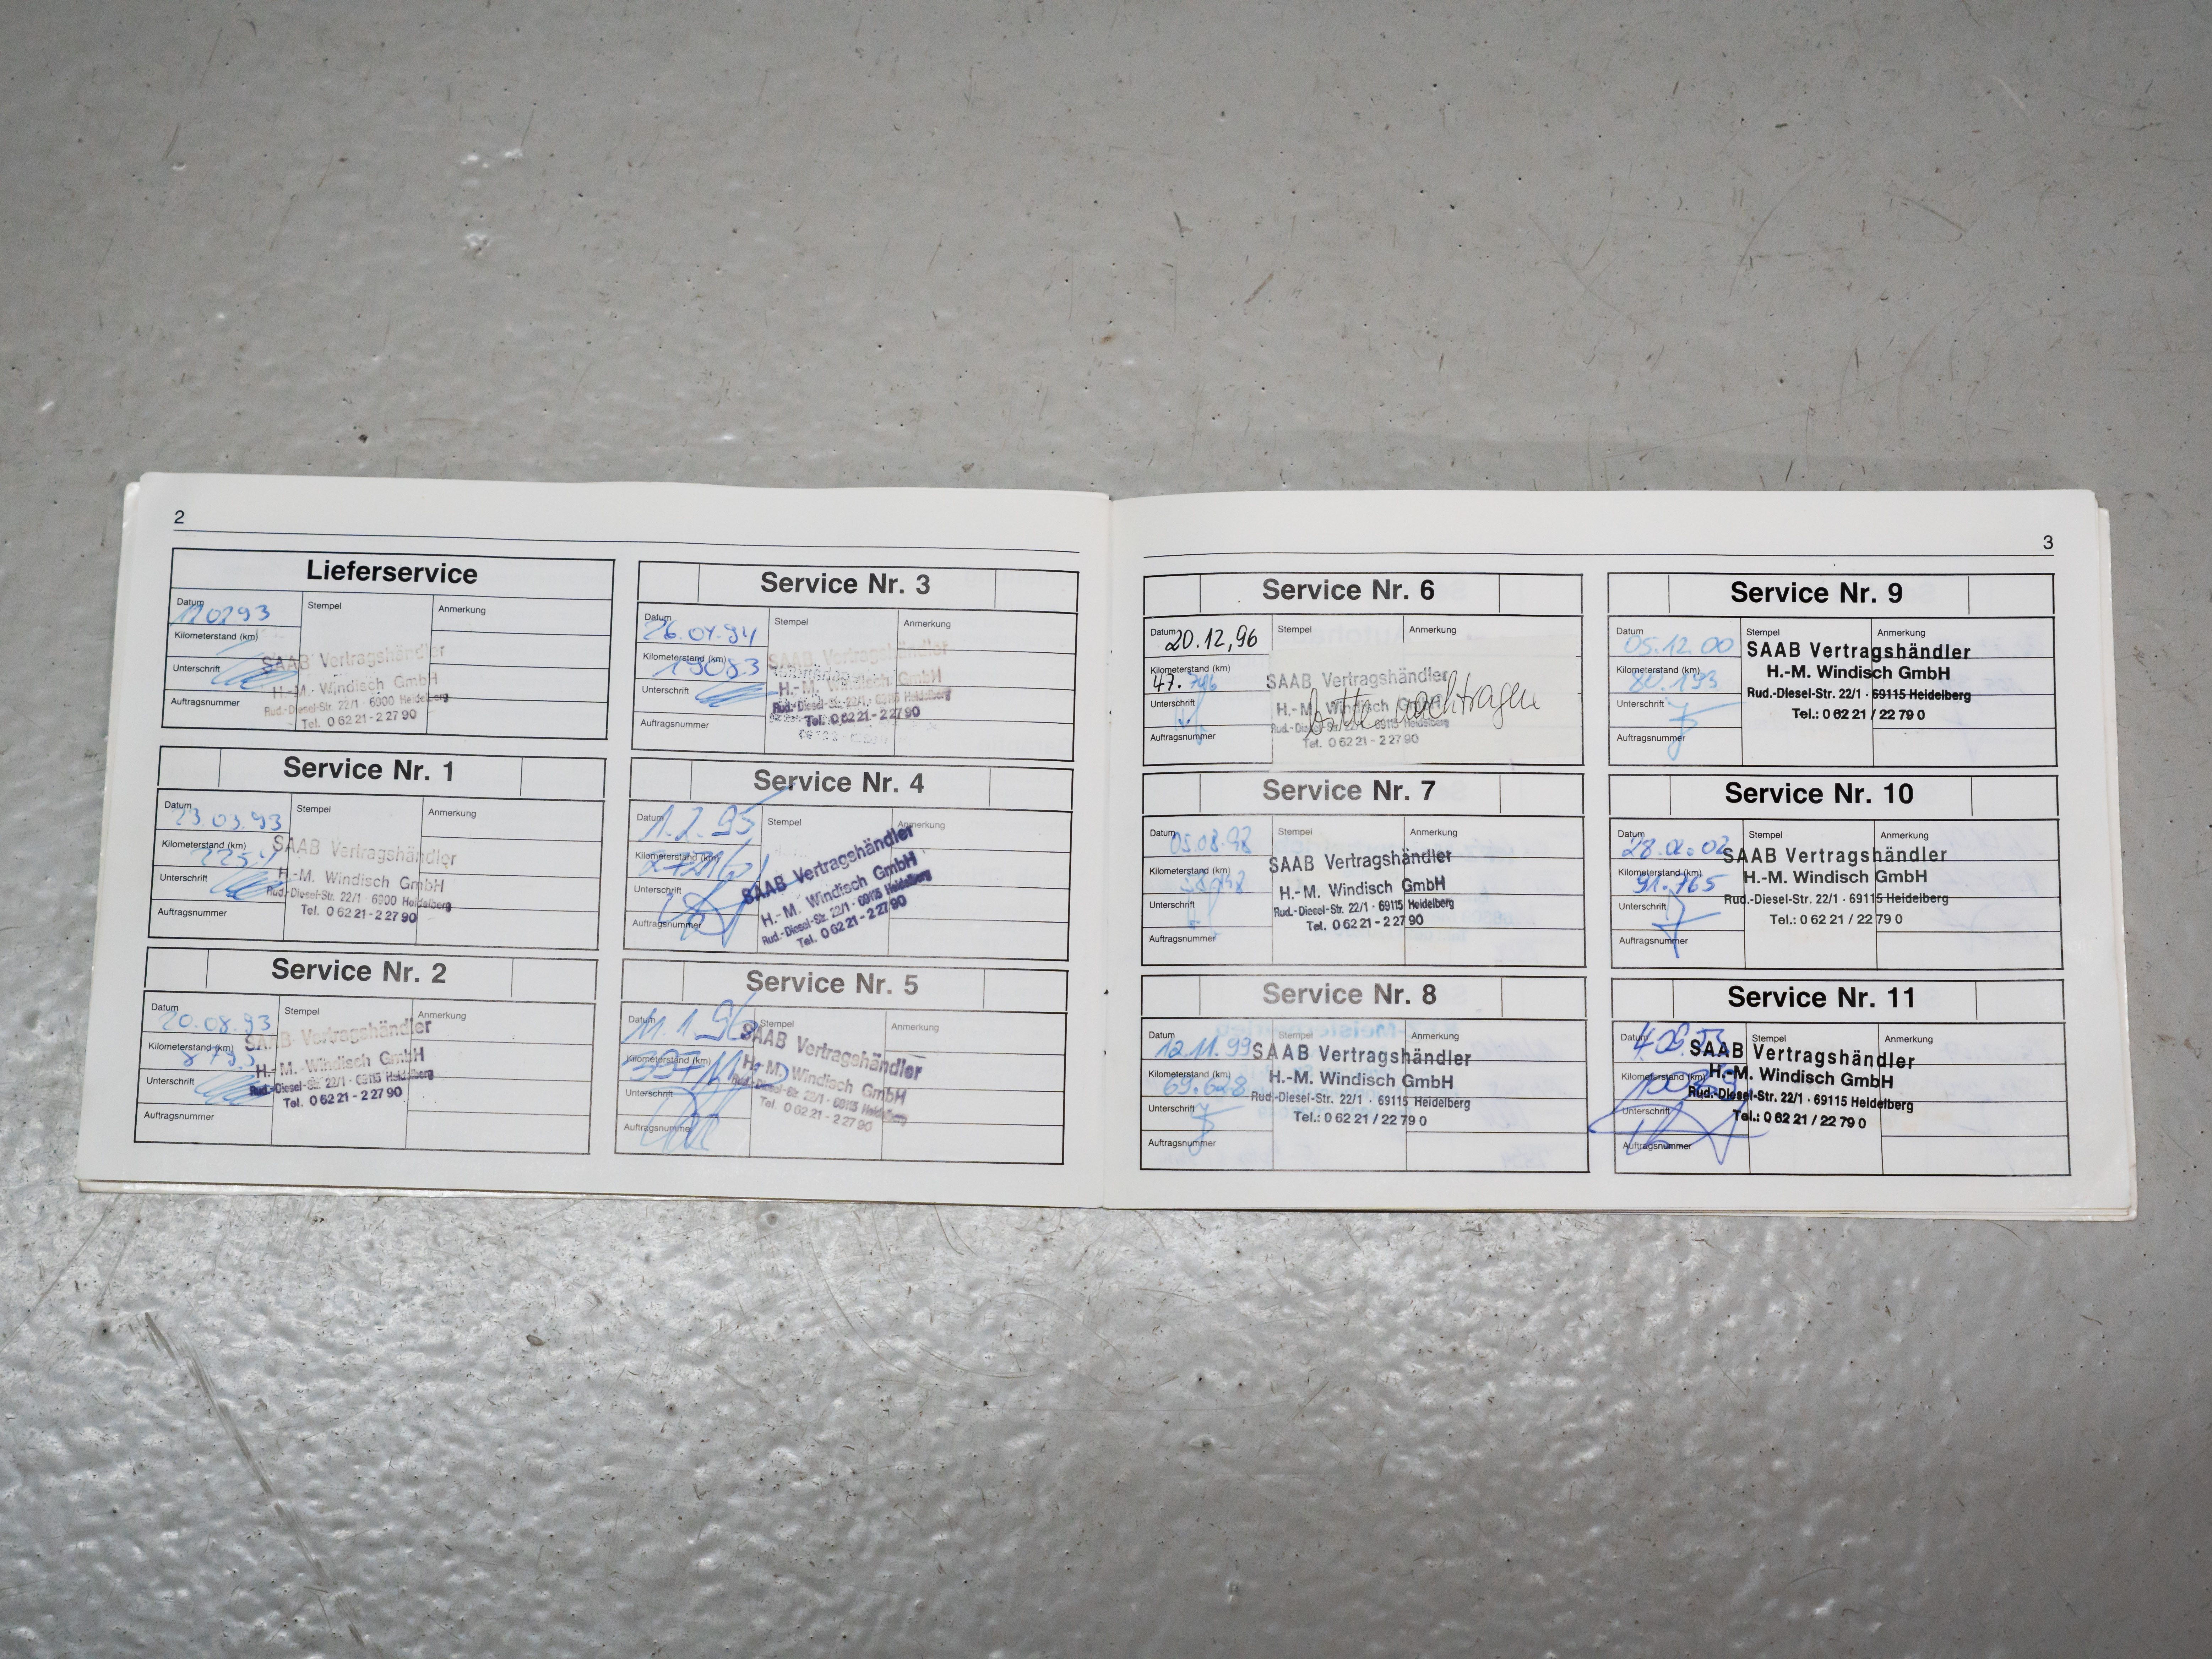 2
Lieferservice
Datum
Stempel
Anmerkung
Kilometerstand (km)
Unterschrift
Auftragsnummer
SAAB Vertragshändler
H.-M. Windisch GmbH
Rud.-Diesel-Str. 22/1 · 6900 Heidelberg
Tel. 0 62 21 - 2 27 90
Service Nr. 1
Datum
23.03.93
Stempel
Anmerkung
Kilometerstand (km)
Unterschrift
Auftragsnummer
SAAB Vertragshändler
H.-M. Windisch GmbH
Rud.-Diesel-Str. 22/1 · 6900 Heidelberg
Tel. 0 62 21 - 2 27 90
Service Nr. 2
Datum
20.08.93
Stempel
Anmerkung
Kilometerstand (km)
Unterschrift
Auftragsnummer
SAAB Vertragshändler
H.-M. Windisch GmbH
Rud.-Diesel-Str. 22/1 · 69115 Heidelberg
Tel. 0 62 21 - 2 27 90
Service Nr. 3
Datum
Stempel
Anmerkung
Kilometerstand (km)
19083
Unterschrift
Auftragsnummer
SAAB Vertragshändler
H.-M. Windisch GmbH
Rud.-Diesel-Str. 22/1 · 69115 Heidelberg
Tel. 0 62 21 - 2 27 90
Service Nr. 4
Datum
1.2.95
Stempel
Anmerkung
Kilometerstand (km)
Unterschrift
Auftragsnummer
SAAB Vertragshändler
H.-M. Windisch GmbH
Rud.-Diesel-Str. 22/1 · 69115 Heidelberg
Tel. 0 62 21 - 2 27 90
Service Nr. 5
Datum
11.1.96
Stempel
Anmerkung
Kilometerstand (km)
Unterschrift
Auftragsnummer
SAAB Vertragshändler
H.-M. Windisch GmbH
Rud.-Diesel-Str. 22/1 · 69115 Heidelberg
Tel. 0 62 21 - 2 27 90
3
Service Nr. 6
Datum
20.12.96
Stempel
Anmerkung
Kilometerstand (km)
Unterschrift
Auftragsnummer
SAAB Vertragshändler
H.-M. Windisch GmbH
Rud.-Diesel-Str. 22/1 · 69115 Heidelberg
Tel. 0 62 21 - 2 27 90
bitte nachtragen
Service Nr. 7
Datum
05.08.98
Stempel
Anmerkung
Kilometerstand (km)
Unterschrift
Auftragsnummer
SAAB Vertragshändler
H.-M. Windisch GmbH
Rud.-Diesel-Str. 22/1 · 69115 Heidelberg
Tel. 0 62 21 - 2 27 90
Service Nr. 8
Datum
12.11.99
Stempel
Anmerkung
Kilometerstand (km)
69.628
Unterschrift
Auftragsnummer
SAAB Vertragshändler
H.-M. Windisch GmbH
Rud.-Diesel-Str. 22/1 · 69115 Heidelberg
Tel.: 0 62 21 / 22 79 0
Service Nr. 9
Datum
05.12.00
Stempel
Anmerkung
Kilometerstand (km)
80.193
Unterschrift
Auftragsnummer
SAAB Vertragshändler
H.-M. Windisch GmbH
Rud.-Diesel-Str. 22/1 · 69115 Heidelberg
Tel.: 0 62 21 / 22 79 0
Service Nr. 10
Datum
Stempel
Anmerkung
Kilometerstand (km)
91.765
Unterschrift
Auftragsnummer
SAAB Vertragshändler
H.-M. Windisch GmbH
Rud.-Diesel-Str. 22/1 · 69115 Heidelberg
Tel.: 0 62 21 / 22 79 0
Service Nr. 11
Datum
Stempel
Anmerkung
Kilometerstand (km)
Unterschrift
Auftragsnummer
SAAB Vertragshändler
H.-M. Windisch GmbH
Rud.-Diesel-Str. 22/1 · 69115 Heidelberg
Tel.: 0 62 21 / 22 79 0